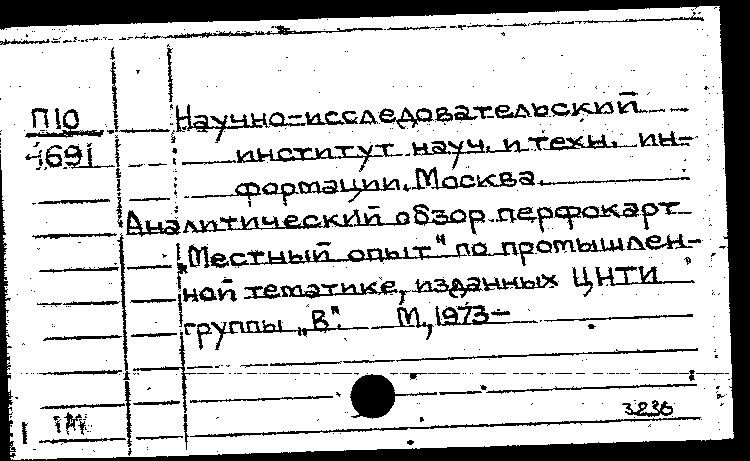 П10
4691
Научно-исследовательский
институт науч. и техн. ин-
формации. Москва.
Аналитический обзор перфокарт
„Местный опыт" по промышлен-
ной тематике, изданных ЦНТИ
группы „В". М., 1973-
3236